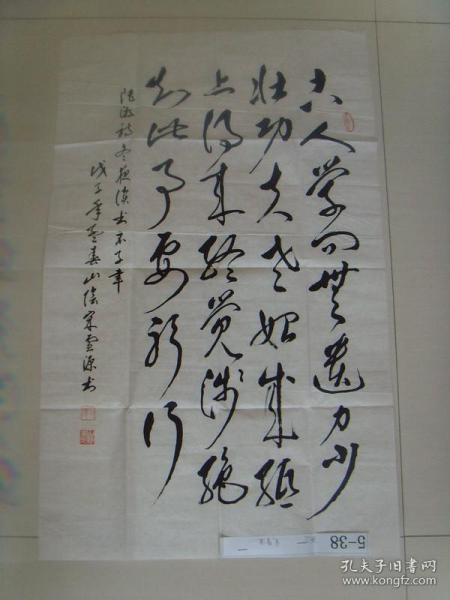 古人学问無遗力少
壮功夫老始成纸
上得来终觉浅绝
知此事要躬行
陆游诗冬夜读书示子聿
戊子年孟春山阴宋雲源书
5-38
孔夫子旧书网
www.kongfz.com